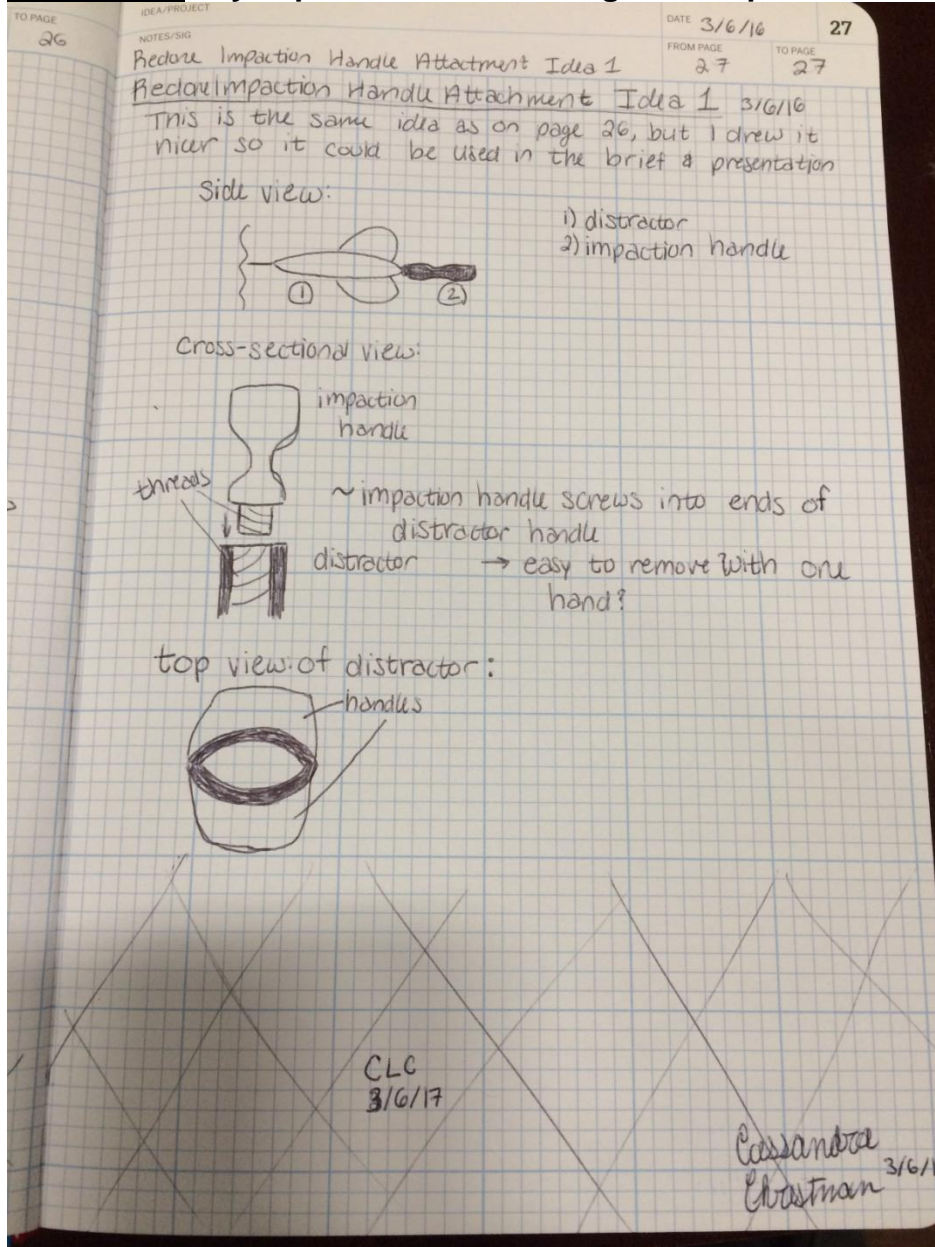 TO PAGE
26
IDEA/PROJECT
NOTES/SIG
DATE 3/6/16
27
FROM PAGE
27
TO PAGE
27
Redone Impaction Handle Attactment Idea 1
Impaction Handle Attachment Idea 1 3/6/16
This is the same idea as on page 26, but I drew it
nicer so it could be used in the brief & presentation
Side view:
1) distractor
2) impaction handle
1
2
Cross-sectional view:
impaction
handle
threads
~ impaction handle screws into ends of
distractor handle
distractor → easy to remove with one
hand?
top view of distractor:
handles
CLC
3/6/17
Cassandra
3/6/1